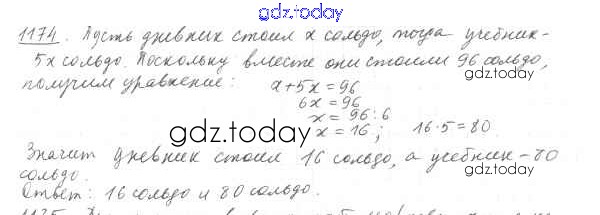 gdz.today
1174. Пусть дневник стоил х сольдо, тогда учебник -
5х сольдо. Поскольку вместе они стоили 96 сольдо,
gdz.today
получим уравнение: х+5х=96
6х=96
х=96:6
х=16; 16·5=80.
gdz.today
gdz.today
Значит дневник стоил 16 сольдо, а учебник - 80
сольдо.
Ответ: 16 сольдо и 80 сольдо.